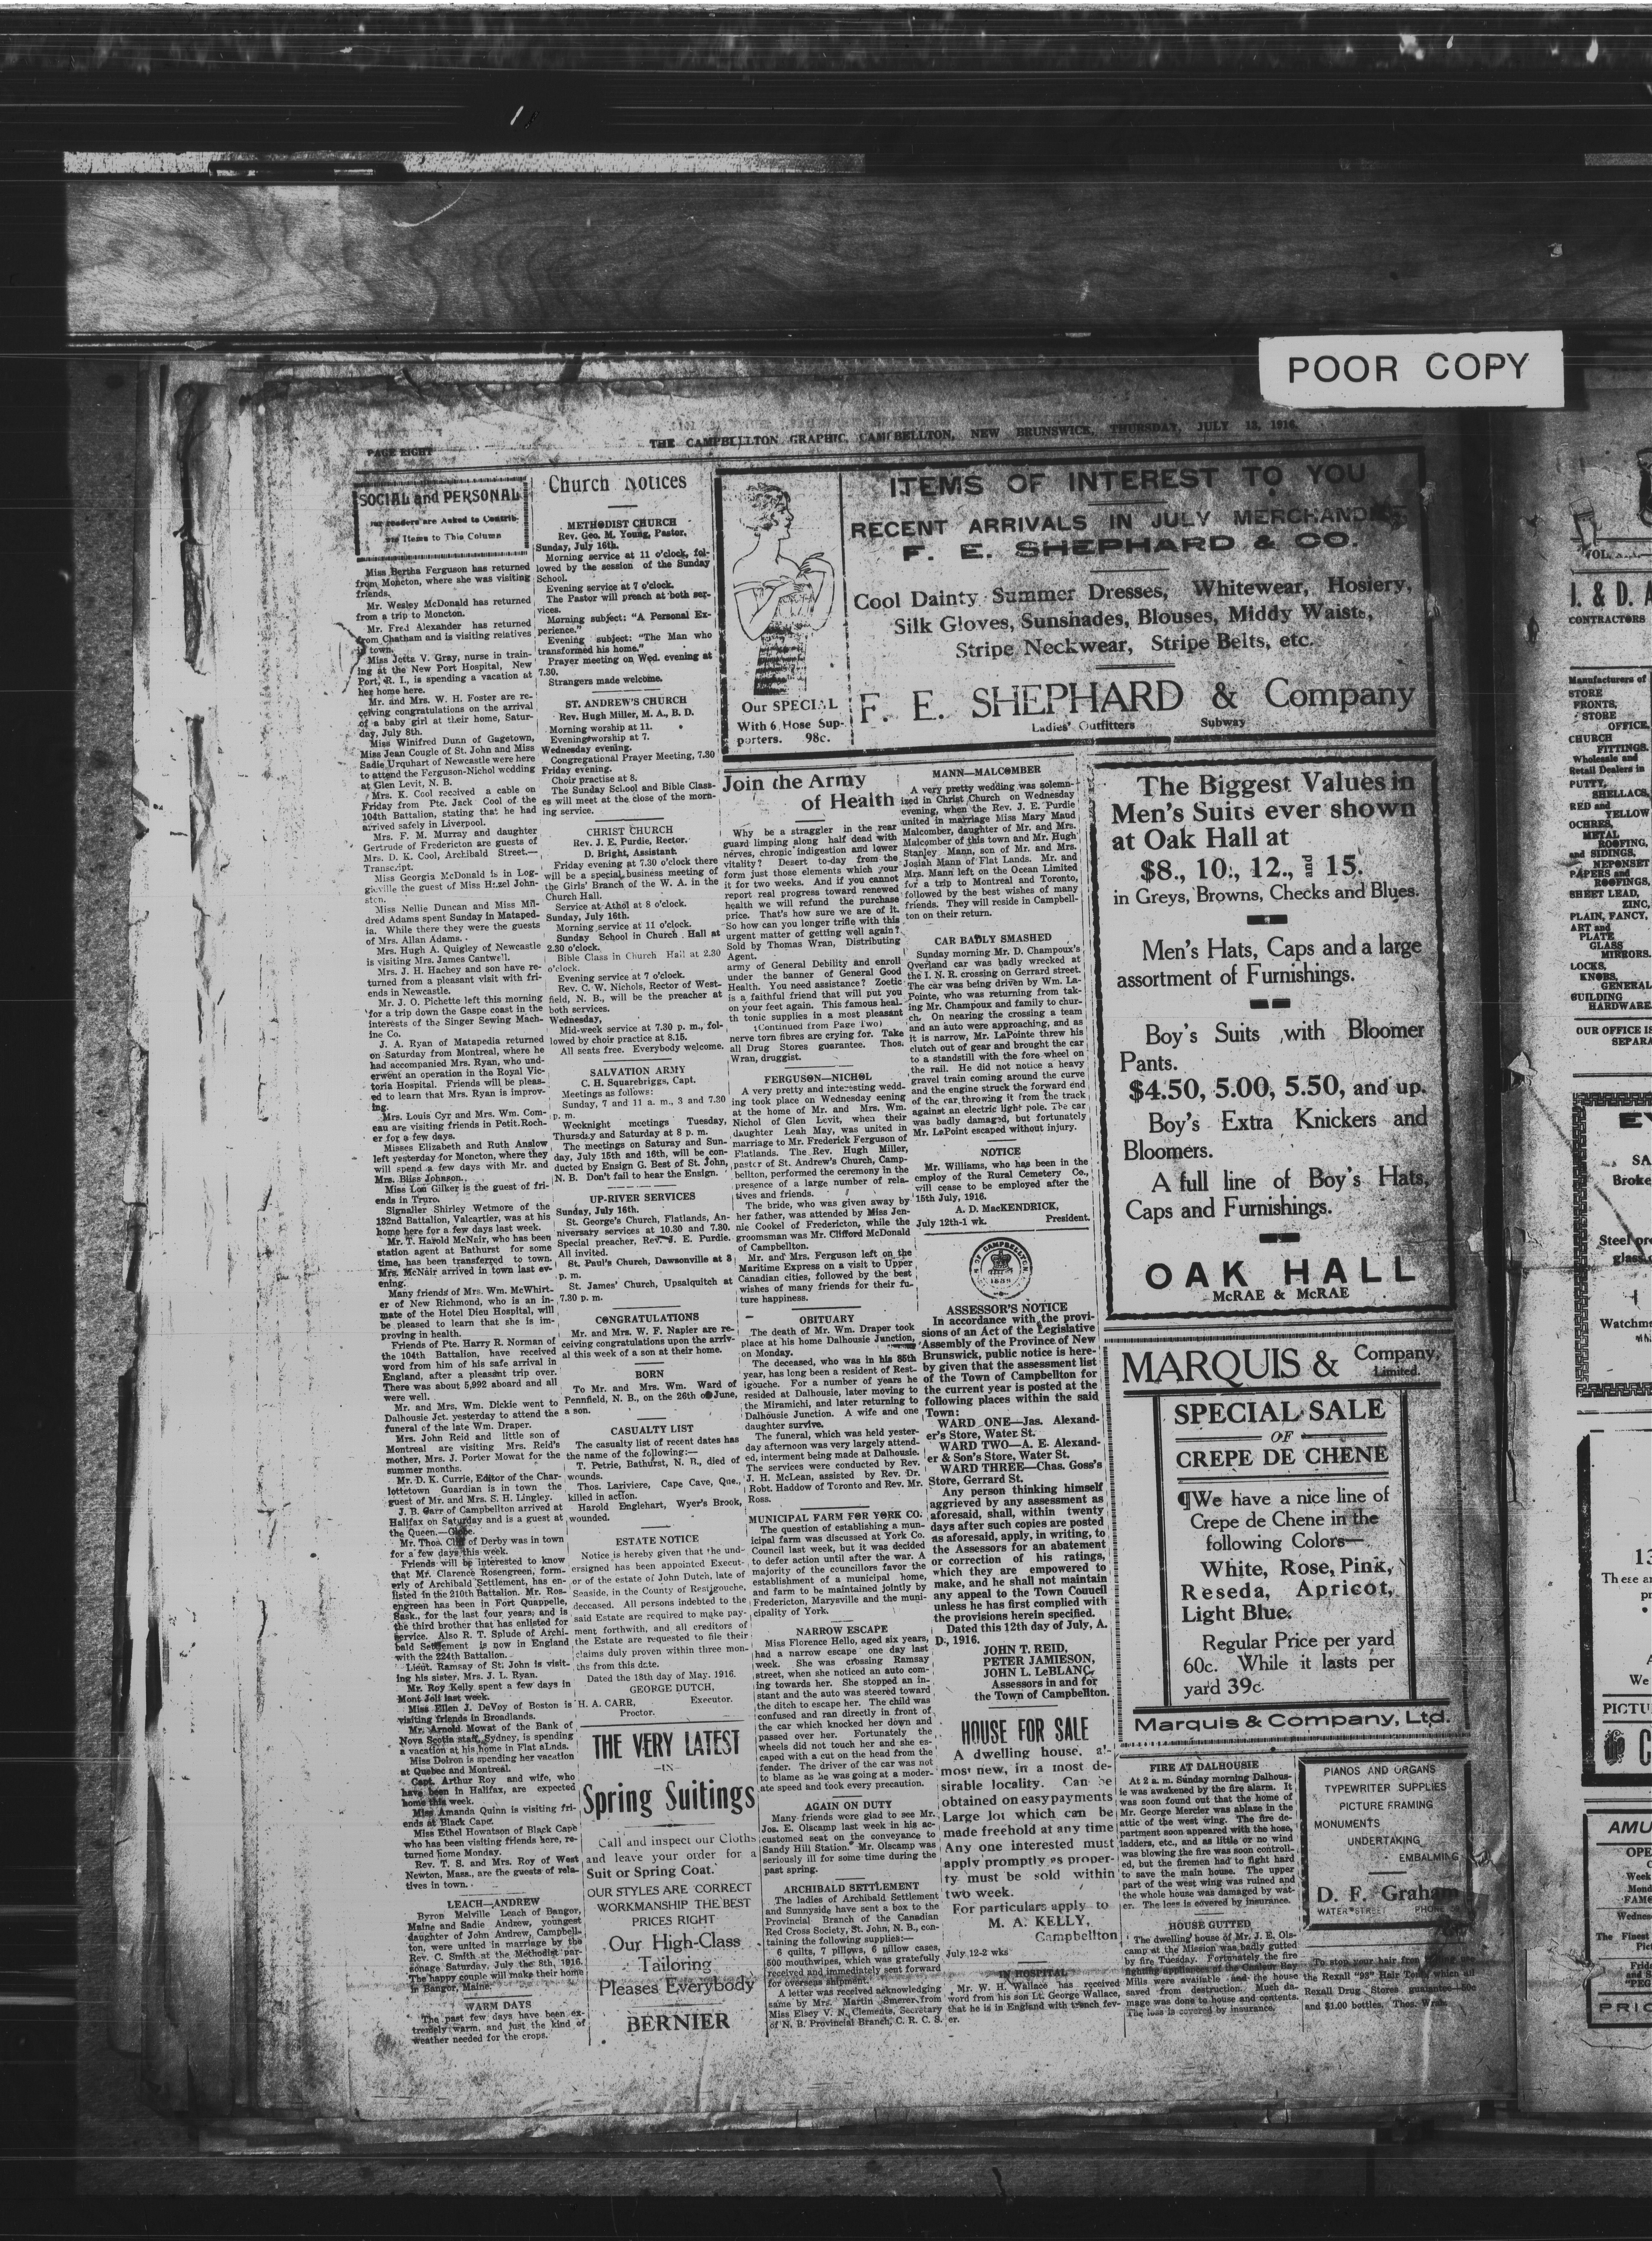 POOR COPY
PAGE EIGHT
THE CAMPBELLTON GRAPHIC, CAMPBELLTON, NEW BRUNSWICK, THURSDAY, JULY 13, 1916.
SOCIAL and PERSONAL
readers are Asked to Contrib-
Items to This Column
Miss Bertha Ferguson has returned
from Moncton, where she was visiting
friends.
Mr. Wesley McDonald has returned
from a trip to Moncton.
Mr. Fred Alexander has returned
from Chatham and is visiting relatives
in town.
Miss Jetta V. Gray, nurse in train-
ing at the New Port Hospital, New
Port, R. I., is spending a vacation at
her home here.
Mr. and Mrs. W. H. Foster are re-
ceiving congratulations on the arrival
of a baby girl at their home, Satur-
day, July 8th.
Miss Winifred Dunn of Gagetown,
Miss Jean Cougle of St. John and Miss
Sadie Urquhart of Newcastle were here
to attend the Ferguson-Nichol wedding
at Glen Levit, N. B.
Mrs. K. Cool received a cable on
Friday from Pte. Jack Cool of the
104th Battalion, stating that he had
arrived safely in Liverpool.
Mrs. F. M. Murray and daughter
Gertrude of Fredericton are guests of
Mrs. D. K. Cool, Archibald Street.—
Transcript.
Miss Georgia McDonald is in Log-
gieville the guest of Miss Hazel John-
ston.
Miss Nellie Duncan and Miss Mil-
dred Adams spent Sunday in Mataped-
ia. While there they were the guests
of Mrs. Allan Adams.
Mrs. Hugh A. Quigley of Newcastle
is visiting Mrs. James Cantwell.
Mrs. J. H. Hachey and son have re-
turned from a pleasant visit with fri-
ends in Newcastle.
Mr. J. O. Pichette left this morning
for a trip down the Gaspe coast in the
interests of the Singer Sewing Mach-
ine Co.
J. A. Ryan of Matapedia returned
on Saturday from Montreal, where he
had accompanied Mrs. Ryan, who und-
erwent an operation in the Royal Vic-
toria Hospital. Friends will be pleas-
ed to learn that Mrs. Ryan is improv-
ing.
Mrs. Louis Cyr and Mrs. Wm. Com-
eau are visiting friends in Petit.Roch-
er for a few days.
Misses Elizabeth and Ruth Anslow
left yesterday for Moncton, where they
will spend a few days with Mr. and
Mrs. Bliss Johnson.
Miss Lou Gilker is the guest of fri-
ends in Truro.
Signaller Shirley Wetmore of the
132nd Battalion, Valcartier, was at his
home here for a few days last week.
Mr. T. Harold McNair, who has been
station agent at Bathurst for some
time, has been transferred to town.
Mrs. McNair arrived in town last ev-
ening.
Many friends of Mrs. Wm. McWhirt-
er of New Richmond, who is an in-
mate of the Hotel Dieu Hospital, will
be pleased to learn that she is im-
proving in health.
Friends of Pte. Harry R. Norman of
the 104th Battalion, have received
word from him of his safe arrival in
England, after a pleasant trip over.
There was about 5,992 aboard and all
were well.
Mr. and Mrs. Wm. Dickie went to
Dalhousie Jct. yesterday to attend the
funeral of the late Wm. Draper.
Mrs. John Reid and little son of
Montreal are visiting Mrs. Reid's
mother, Mrs. J. Porter Mowat for the
summer months.
Mr. D. K. Currie, Editor of the Char-
lottetown Guardian is in town the
guest of Mr. and Mrs. S. H. Lingley.
J. B. Carr of Campbellton arrived at
Halifax on Saturday and is a guest at
the Queen.—Globe.
Mr. Thos. Cliff of Derby was in town
for a few days this week.
Friends will be interested to know
that Mr. Clarence Rosengreen, form-
erly of Archibald Settlement, has en-
listed in the 210th Battalion. Mr. Ros-
engreen has been in Fort Quappelle,
Sask., for the last four years; and is
the third brother that has enlisted for
service. Also R. T. Splude of Archi-
bald Settlement is now in England
with the 224th Battalion.
Lieut. Ramsay of St. John is visit-
ing his sister, Mrs. J. L. Ryan.
Mr. Roy Kelly spent a few days in
Mont Joli last week.
Miss Ellen J. DeVoy of Boston is
visiting friends in Broadlands.
Mr. Arnold Mowat of the Bank of
Nova Scotia staff, Sydney, is spending
a vacation at his home in Flat aLnds.
Miss Dotron is spending her vacation
at Quebec and Montreal.
Capt. Arthur Roy and wife, who
have been in Halifax, are expected
home this week.
Miss Amanda Quinn is visiting fri-
ends at Black Cape.
Miss Ethel Howatson of Black Cape
who has been visiting friends here, re-
turned home Monday.
Rev. T. S. and Mrs. Roy of West
Newton, Mass., are the guests of rela-
tives in town.
LEACH—ANDREW
Byron Melville Leach of Bangor,
Maine and Sadie Andrew, youngest
daughter of John Andrew, Campbell-
ton, were united in marriage by the
Rev. C. Smith at the Methodist par-
sonage Saturday, July the 8th, 1916.
The happy couple will make their home
in Bangor, Maine.
WARM DAYS
The past few days have been ex-
tremely warm, and just the kind of
weather needed for the crops.
Church Notices
METHODIST CHURCH
Rev. Geo. M. Young, Pastor.
Sunday, July 16th.
Morning service at 11 o'clock, fol-
lowed by the session of the Sunday
School.
Evening service at 7 o'clock.
The Pastor will preach at both ser-
vices.
Morning subject: "A Personal Ex-
perience."
Evening subject: "The Man who
transformed his home."
Prayer meeting on Wed. evening at
7.30.
Strangers made welcome.
ST. ANDREW'S CHURCH
Rev. Hugh Miller, M. A., B. D.
Morning worship at 11.
Evening worship at 7.
Wednesday evening.
Congregational Prayer Meeting, 7.30
Friday evening.
Choir practise at 8.
The Sunday School and Bible Class-
es will meet at the close of the morn-
ing service.
CHRIST CHURCH
Rev. J. E. Purdie, Rector.
D. Bright, Assistant.
Friday evening at 7.30 o'clock there
will be a special business meeting of
the Girls' Branch of the W. A. in the
Church Hall.
Service at Athol at 8 o'clock.
Sunday, July 16th.
Morning service at 11 o'clock.
Sunday School in Church Hall at
2.30 o'clock.
Bible Class in Church Hall at 2.30
o'clock.
Evening service at 7 o'clock.
Rev. C. W. Nichols, Rector of West-
field, N. B., will be the preacher at
both services.
Wednesday,
Mid-week service at 7.30 p. m., fol-
lowed by choir practice at 8.15.
All seats free. Everybody welcome.
SALVATION ARMY
C. H. Squarebriggs, Capt.
Meetings as follows:
Sunday, 7 and 11 a. m., 3 and 7.30
p. m.
Weeknight meetings Tuesday,
Thursday and Saturday at 8 p. m.
The meetings on Saturay and Sun-
day, July 15th and 16th, will be con-
ducted by Ensign G. Best of St. John,
N. B. Don't fail to hear the Ensign.
UP-RIVER SERVICES
Sunday, July 16th.
St. George's Church, Flatlands, An-
niversary services at 10.30 and 7.30.
Special preacher, Rev. J. E. Purdie.
All invited.
St. Paul's Church, Dawsonville at 3
p. m.
St. James' Church, Upsalquitch at
7.30 p. m.
CONGRATULATIONS
Mr. and Mrs. W. F. Napier are re-
ceiving congratulations upon the arriv-
al this week of a son at their home.
BORN
To Mr. and Mrs. Wm. Ward of
Pennfield, N. B., on the 26th of June,
a son.
CASUALTY LIST
The casualty list of recent dates has
the name of the following:—
T. Petrie, Bathurst, N. B., died of
wounds.
Thos. Lariviere, Cape Cave, Que.,
killed in action.
Harold Englehart, Wyer's Brook,
wounded.
ESTATE NOTICE
Notice is hereby given that the und-
ersigned has been appointed Execut-
or of the estate of John Dutch, late of
Seaside, in the County of Restigouche,
deceased. All persons indebted to the
said Estate are required to make pay-
ment forthwith, and all creditors of
the Estate are requested to file their
claims duly proven within three mon-
ths from this date.
Dated the 18th day of May. 1916.
GEORGE DUTCH,
H. A. CARR, Executor.
Proctor.
THE VERY LATEST
—IN—
Spring Suitings
Call and inspect our Cloths
and leave your order for a
Suit or Spring Coat.
OUR STYLES ARE CORRECT
WORKMANSHIP THE BEST
PRICES RIGHT
Our High-Class
Tailoring
Pleases Everybody
BERNIER
ITEMS OF INTEREST TO YOU
RECENT ARRIVALS IN JULY MERCHANDISE
F. E. SHEPHARD & CO.
Cool Dainty Summer Dresses, Whitewear, Hosiery,
Silk Gloves, Sunshades, Blouses, Middy Waists,
Stripe Neckwear, Stripe Belts, etc.
F. E. SHEPHARD & Company
Ladies' Outfitters Subway
Our SPECIAL
With 6 Hose Sup-
porters. 98c.
Join the Army
of Health
Why be a straggler in the rear
guard limping along half dead with
nerves, chronic indigestion and lower
vitality? Desert to-day from the
form just those elements which your
it for two weeks. And if you cannot
report real progress toward renewed
health we will refund the purchase
price. That's how sure we are of it.
So how can you longer trifle with this
urgent matter of getting well again?
Sold by Thomas Wran, Distributing
Agent.
army of General Debility and enroll
under the banner of General Good
Health. You need assistance? Zoetic
is a faithful friend that will put you
on your feet again. This famous heal-
th tonic supplies in a most pleasant
(Continued from Page Two)
nerve torn fibres are crying for. Take
all Drug Stores guarantee. Thos.
Wran, druggist.
FERGUSON—NICHOL
A very pretty and interesting wedd-
ing took place on Wednesday eening
at the home of Mr. and Mrs. Wm.
Nichol of Glen Levit, when their
daughter Leah May, was united in
marriage to Mr. Frederick Ferguson of
Flatlands. The Rev. Hugh Miller,
pastor of St. Andrew's Church, Camp-
bellton, performed the ceremony in the
presence of a large number of rela-
tives and friends.
The bride, who was given away by
her father, was attended by Miss Jen-
nie Cookel of Fredericton, while the
groomsman was Mr. Clifford McDonald
of Campbellton.
Mr. and Mrs. Ferguson left on the
Maritime Express on a visit to Upper
Canadian cities, followed by the best
wishes of many friends for their fu-
ture happiness.
OBITUARY
The death of Mr. Wm. Draper took
place at his home Dalhousie Junction,
on Monday.
The deceased, who was in his 85th
year, has long been a resident of Rest-
igouche. For a number of years he
resided at Dalhousie, later moving to
the Miramichi, and later returning to
Dalhousie Junction. A wife and one
daughter survive.
The funeral, which was held yester-
day afternoon was very largely attend-
ed, interment being made at Dalhousie.
The services were conducted by Rev.
J. H. McLean, assisted by Rev. Dr.
Robt. Haddow of Toronto and Rev. Mr.
Ross.
MUNICIPAL FARM FOR YORK CO.
The question of establishing a mun-
icipal farm was discussed at York Co.
Council last week, but it was decided
to defer action until after the war. A
majority of the councillors favor the
establishment of a municipal home,
and farm to be maintained jointly by
Fredericton, Marysville and the muni-
cipality of York.
NARROW ESCAPE
Miss Florence Hello, aged six years,
had a narrow escape one day last
week. She was crossing Ramsay
street, when she noticed an auto com-
ing towards her. She stopped an in-
stant and the auto was steered toward
the ditch to escape her. The child was
confused and ran directly in front of
the car which knocked her down and
passed over her. Fortunately the
wheels did not touch her and she es-
caped with a cut on the head from the
fender. The driver of the car was not
to blame as he was going at a moder-
ate speed and took every precaution.
AGAIN ON DUTY
Many friends were glad to see Mr.
Jos. E. Olscamp last week in his ac-
customed seat on the conveyance to
Sandy Hill Station. Mr. Olscamp was
seriously ill for some time during the
past spring.
ARCHIBALD SETTLEMENT
The ladies of Archibald Settlement
and Sunnyside have sent a box to the
Provincial Branch of the Canadian
Red Cross Society, St. John, N. B., con-
taining the following supplies:—
6 quilts, 7 pillows, 6 pillow cases,
500 mouthwipes, which was gratefully
received and immediately sent forward
for overseas shipment.
A letter was received acknowledging
same by Mrs. Martin Smerer from
Miss Elsey V. N. Clements, Secretary
of N. B. Provincial Branch, C. R. C. S.
MANN—MALCOMBER
A very pretty wedding was solemn-
ized in Christ Church on Wednesday
evening, when the Rev. J. E. Purdie
united in marriage Miss Mary Maud
Malcomber, daughter of Mr. and Mrs.
Malcomber of this town and Mr. Hugh
Stanley Mann, son of Mr. and Mrs.
Josiah Mann of Flat Lands. Mr. and
Mrs. Mann left on the Ocean Limited
for a trip to Montreal and Toronto,
followed by the best wishes of many
friends. They will reside in Campbell-
ton on their return.
CAR BADLY SMASHED
Sunday morning Mr. D. Champoux's
Overland car was badly wrecked at
the I. N. R. crossing on Gerrard street.
The car was being driven by Wm. La-
Pointe, who was returning from tak-
ing Mr. Champoux and family to chur-
ch. On nearing the crossing a team
and an auto were approaching, and as
it is narrow, Mr. LaPointe threw his
clutch out of gear and brought the car
to a standstill with the fore wheel on
the rail. He did not notice a heavy
gravel train coming around the curve
and the engine struck the forward end
of the car, throwing it from the track
against an electric light pole. The car
was badly damaged, but fortunately
Mr. LaPoint escaped without injury.
NOTICE
Mr. Williams, who has been in the
employ of the Rural Cemetery Co.,
will cease to be employed after the
15th July, 1916.
A. D. MacKENDRICK,
July 12th-1 wk. President.
CAMPBELLTON
ASSESSOR'S NOTICE
In accordance with the provi-
sions of an Act of the Legislative
Assembly of the Province of New
Brunswick, public notice is here-
by given that the assessment list
of the Town of Campbellton for
the current year is posted at the
following places within the said
Town:
WARD ONE—Jas. Alexand-
er's Store, Water St.
WARD TWO—A. E. Alexand-
er & Son's Store, Water St.
WARD THREE—Chas. Goss's
Store, Gerrard St.
Any person thinking himself
aggrieved by any assessment as
aforesaid, shall, within twenty
days after such copies are posted
as aforesaid, apply, in writing, to
the Assessors for an abatement
or correction of his ratings,
which they are empowered to
make, and he shall not maintain
any appeal to the Town Council
unless he has first complied with
the provisions herein specified.
Dated this 12th day of July, A.
D., 1916.
JOHN T. REID,
PETER JAMIESON,
JOHN L. LeBLANC,
Assessors in and for
the Town of Campbellton.
HOUSE FOR SALE
A dwelling house, al-
most new, in a most de-
sirable locality. Can be
obtained on easy payments
Large lot which can be
made freehold at any time
Any one interested must
apply promptly as proper-
ty must be sold within
two week.
For particulars apply to
M. A. KELLY,
Campbellton
July 12-2 wks
IN HOSPITAL
Mr. W. H. Wallace has received
word from his son Lt. George Wallace,
that he is in England with trench fev-
er.
The Biggest Values in
Men's Suits ever shown
at Oak Hall at
$8., 10., 12., and 15.
in Greys, Browns, Checks and Blues.
Men's Hats, Caps and a large
assortment of Furnishings.
Boy's Suits with Bloomer
Pants.
$4.50, 5.00, 5.50, and up.
Boy's Extra Knickers and
Bloomers.
A full line of Boy's Hats,
Caps and Furnishings.
OAK HALL
McRAE & McRAE
MARQUIS & Company,
Limited.
SPECIAL SALE
OF
CREPE DE CHENE
¶We have a nice line of
Crepe de Chene in the
following Colors—
White, Rose, Pink,
Reseda, Apricot,
Light Blue.
Regular Price per yard
60c. While it lasts per
yard 39c.
Marquis & Company, Ltd.
FIRE AT DALHOUSIE
At 2 a. m. Sunday morning Dalhous-
ie was awakened by the fire alarm. It
was soon found out that the home of
Mr. George Mercier was ablaze in the
attic of the west wing. The fire de-
partment soon appeared with the hose,
ladders, etc., and as little or no wind
was blowing the fire was soon controll-
ed, but the firemen had to fight hard
to save the main house. The upper
part of the west wing was ruined and
the whole house was damaged by wat-
er. The loss is covered by insurance.
HOUSE GUTTED
The dwelling house of Mr. J. E. Ols-
camp at the Mission was badly gutted
by fire Tuesday. Fortunately the fire
fighting appliances of the Chaleur Bay
Mills were available and the house
saved from destruction. Much da-
mage was done to house and contents.
The loss is covered by insurance.
PIANOS AND ORGANS
TYPEWRITER SUPPLIES
PICTURE FRAMING
MONUMENTS
UNDERTAKING
EMBALMING
D. F. Graham
WATER STREET PHONE
To stop your hair from
the Rexall "93" Hair Tonic which all
Rexall Drug Stores guarantee—50c
and $1.00 bottles. Thos. Wran.
VOL.
I. & D. A
CONTRACTORS
Manufacturers of
STORE
FRONTS,
STORE
OFFICE,
CHURCH
FITTINGS.
Wholesale and
Retail Dealers in
PUTTY,
SHELLACS,
RED and
YELLOW
OCHRES,
METAL
ROOFING,
and SIDINGS,
NEPONSET
PAPERS and
ROOFINGS,
SHEET LEAD,
ZINC,
PLAIN, FANCY,
ART and
PLATE
GLASS
MIRRORS.
LOCKS,
KNOBS,
GENERAL
BUILDING
HARDWARE
OUR OFFICE IS
SEPARA
EY
SA
Broke
Steel pre
glass
Watchm
13
These ar
We
PICTU
C
AMU
OPE
Week
Mond
FAME
Wednes
The Finest
Pic
Frid
and S
PEG
PRIC